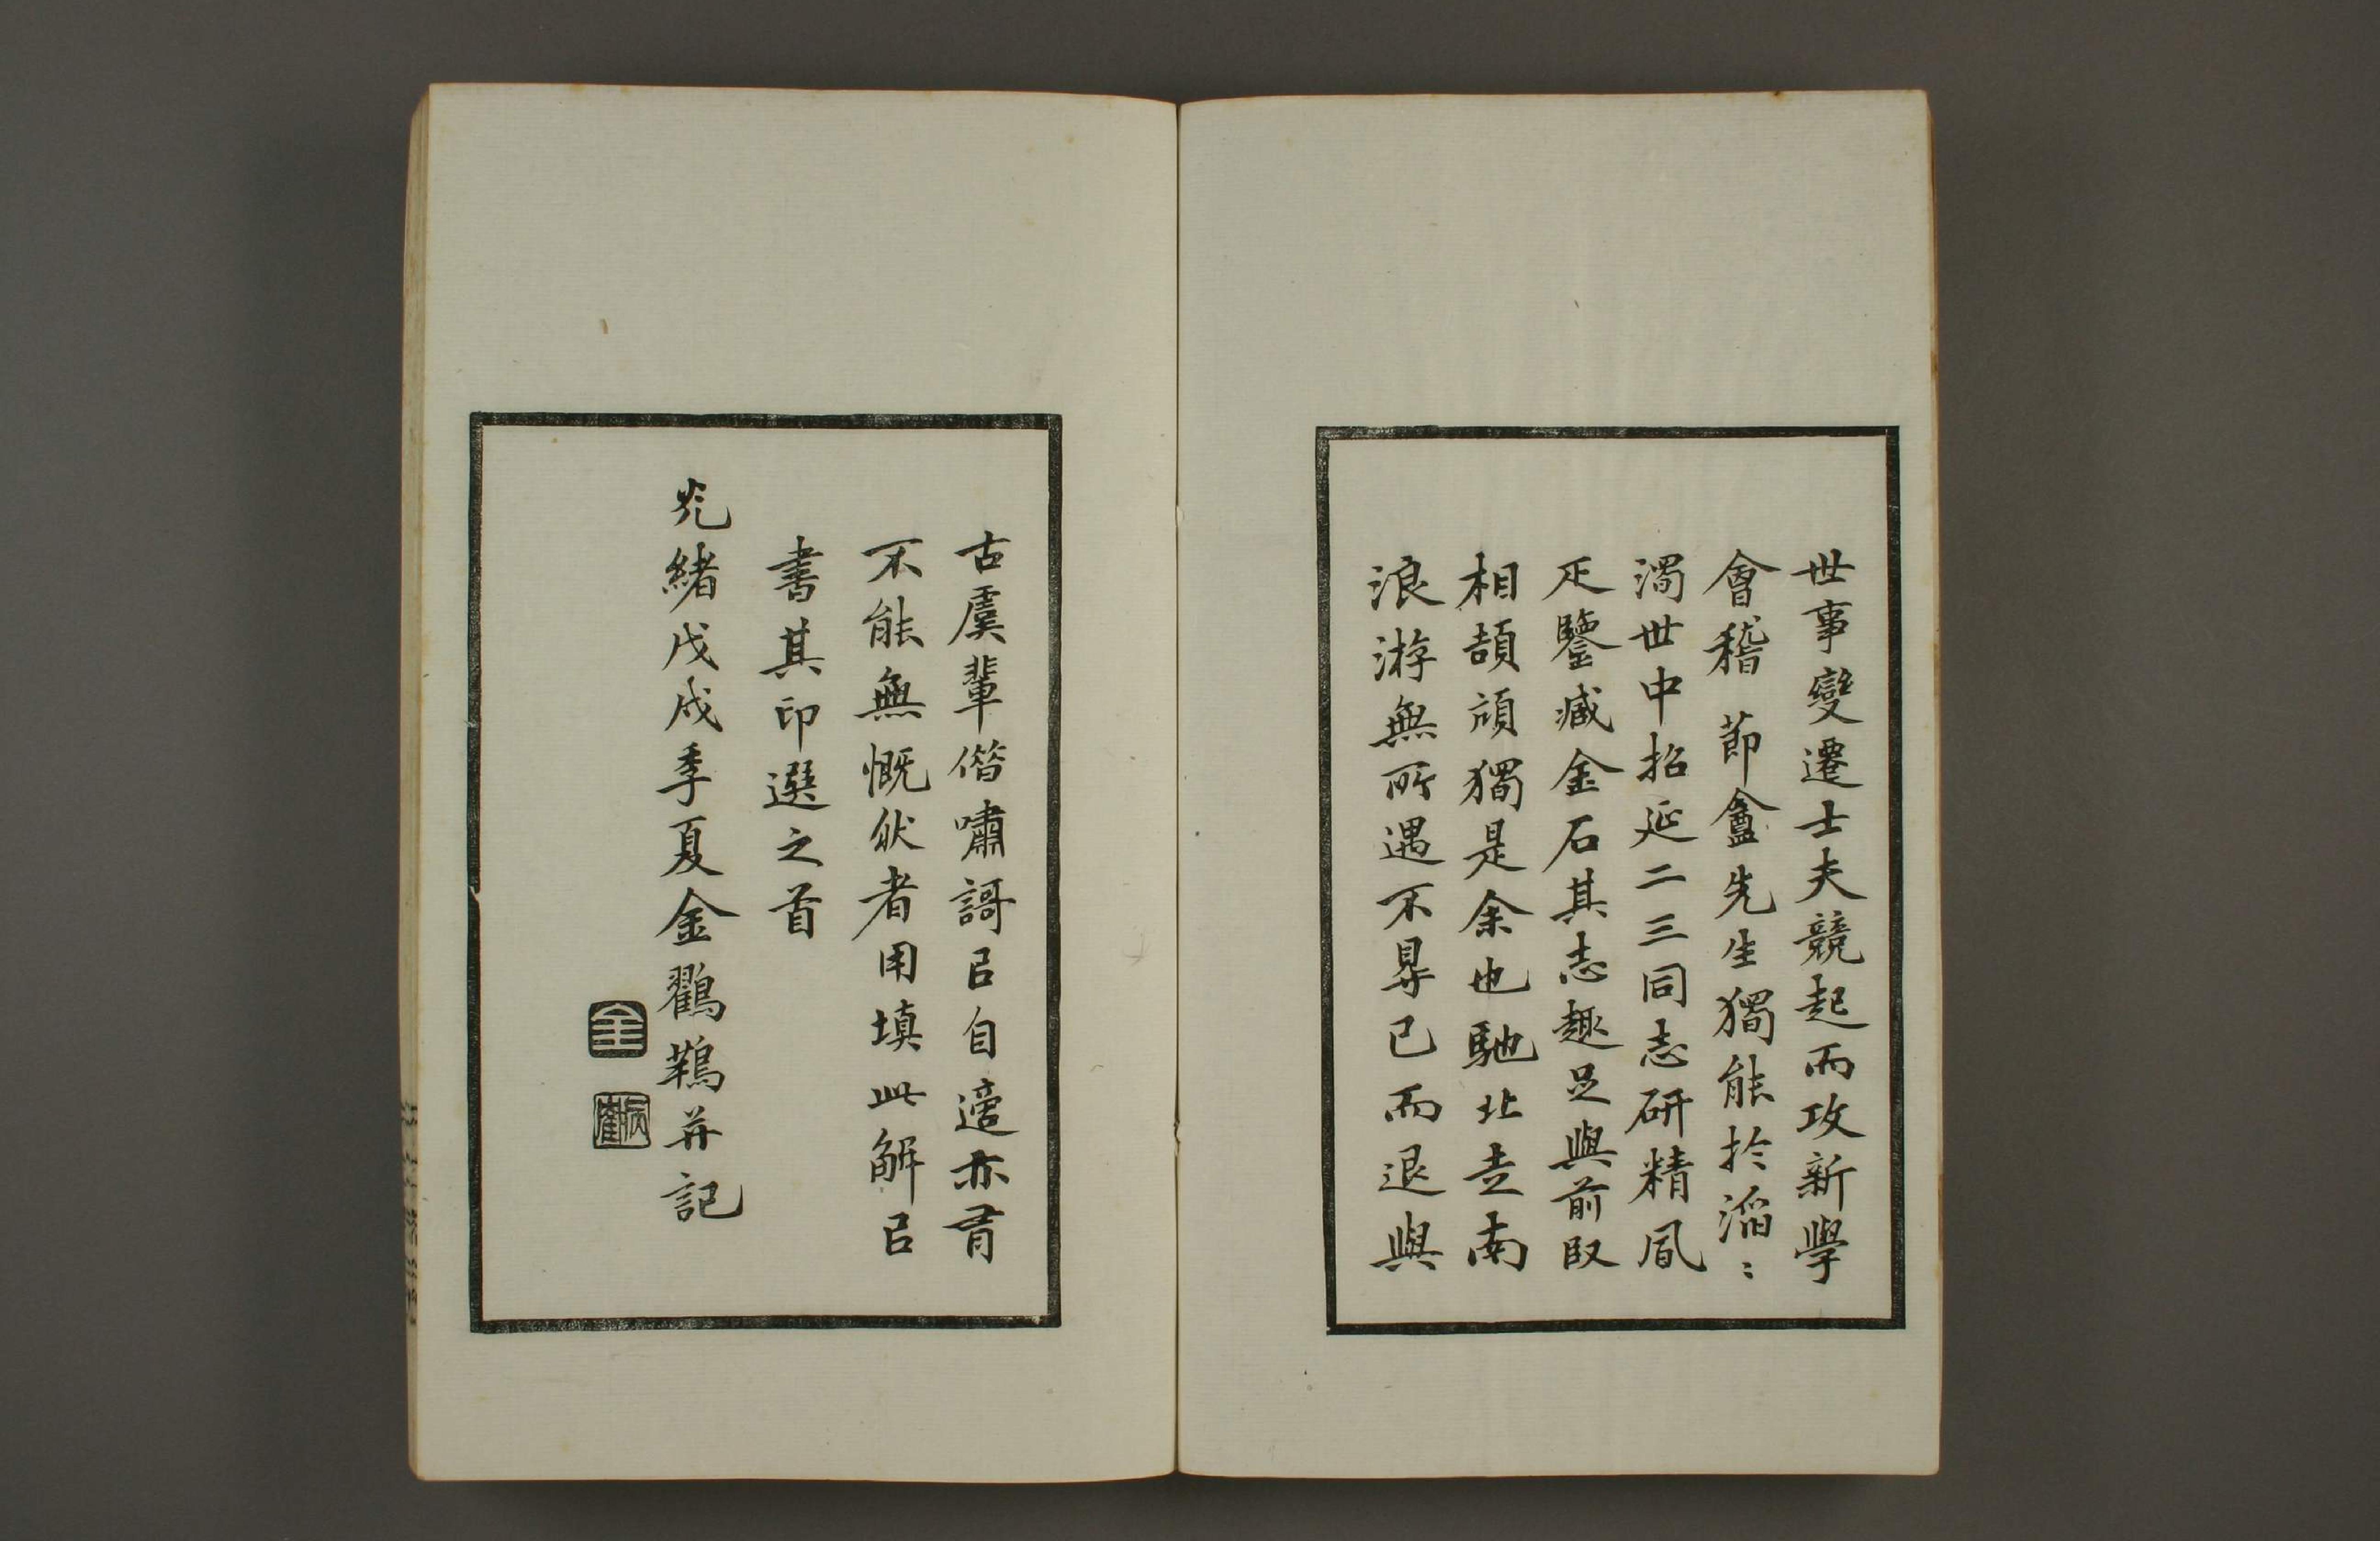 世事變遷士夫競起而攻新學
會稽 節盦先生獨能於滔〻
濁世中招延二三同志研精夙
疋鑒臧金石其志趣足與前臤
相頡頏獨是余也馳北走南
浪游無所遇不㝵已而退與
古虞輩偕嘯謌㠯自適亦有
不能無慨然者用填此解㠯
書其印選之首
光緒戊戌季夏金鸖鶽并記
金